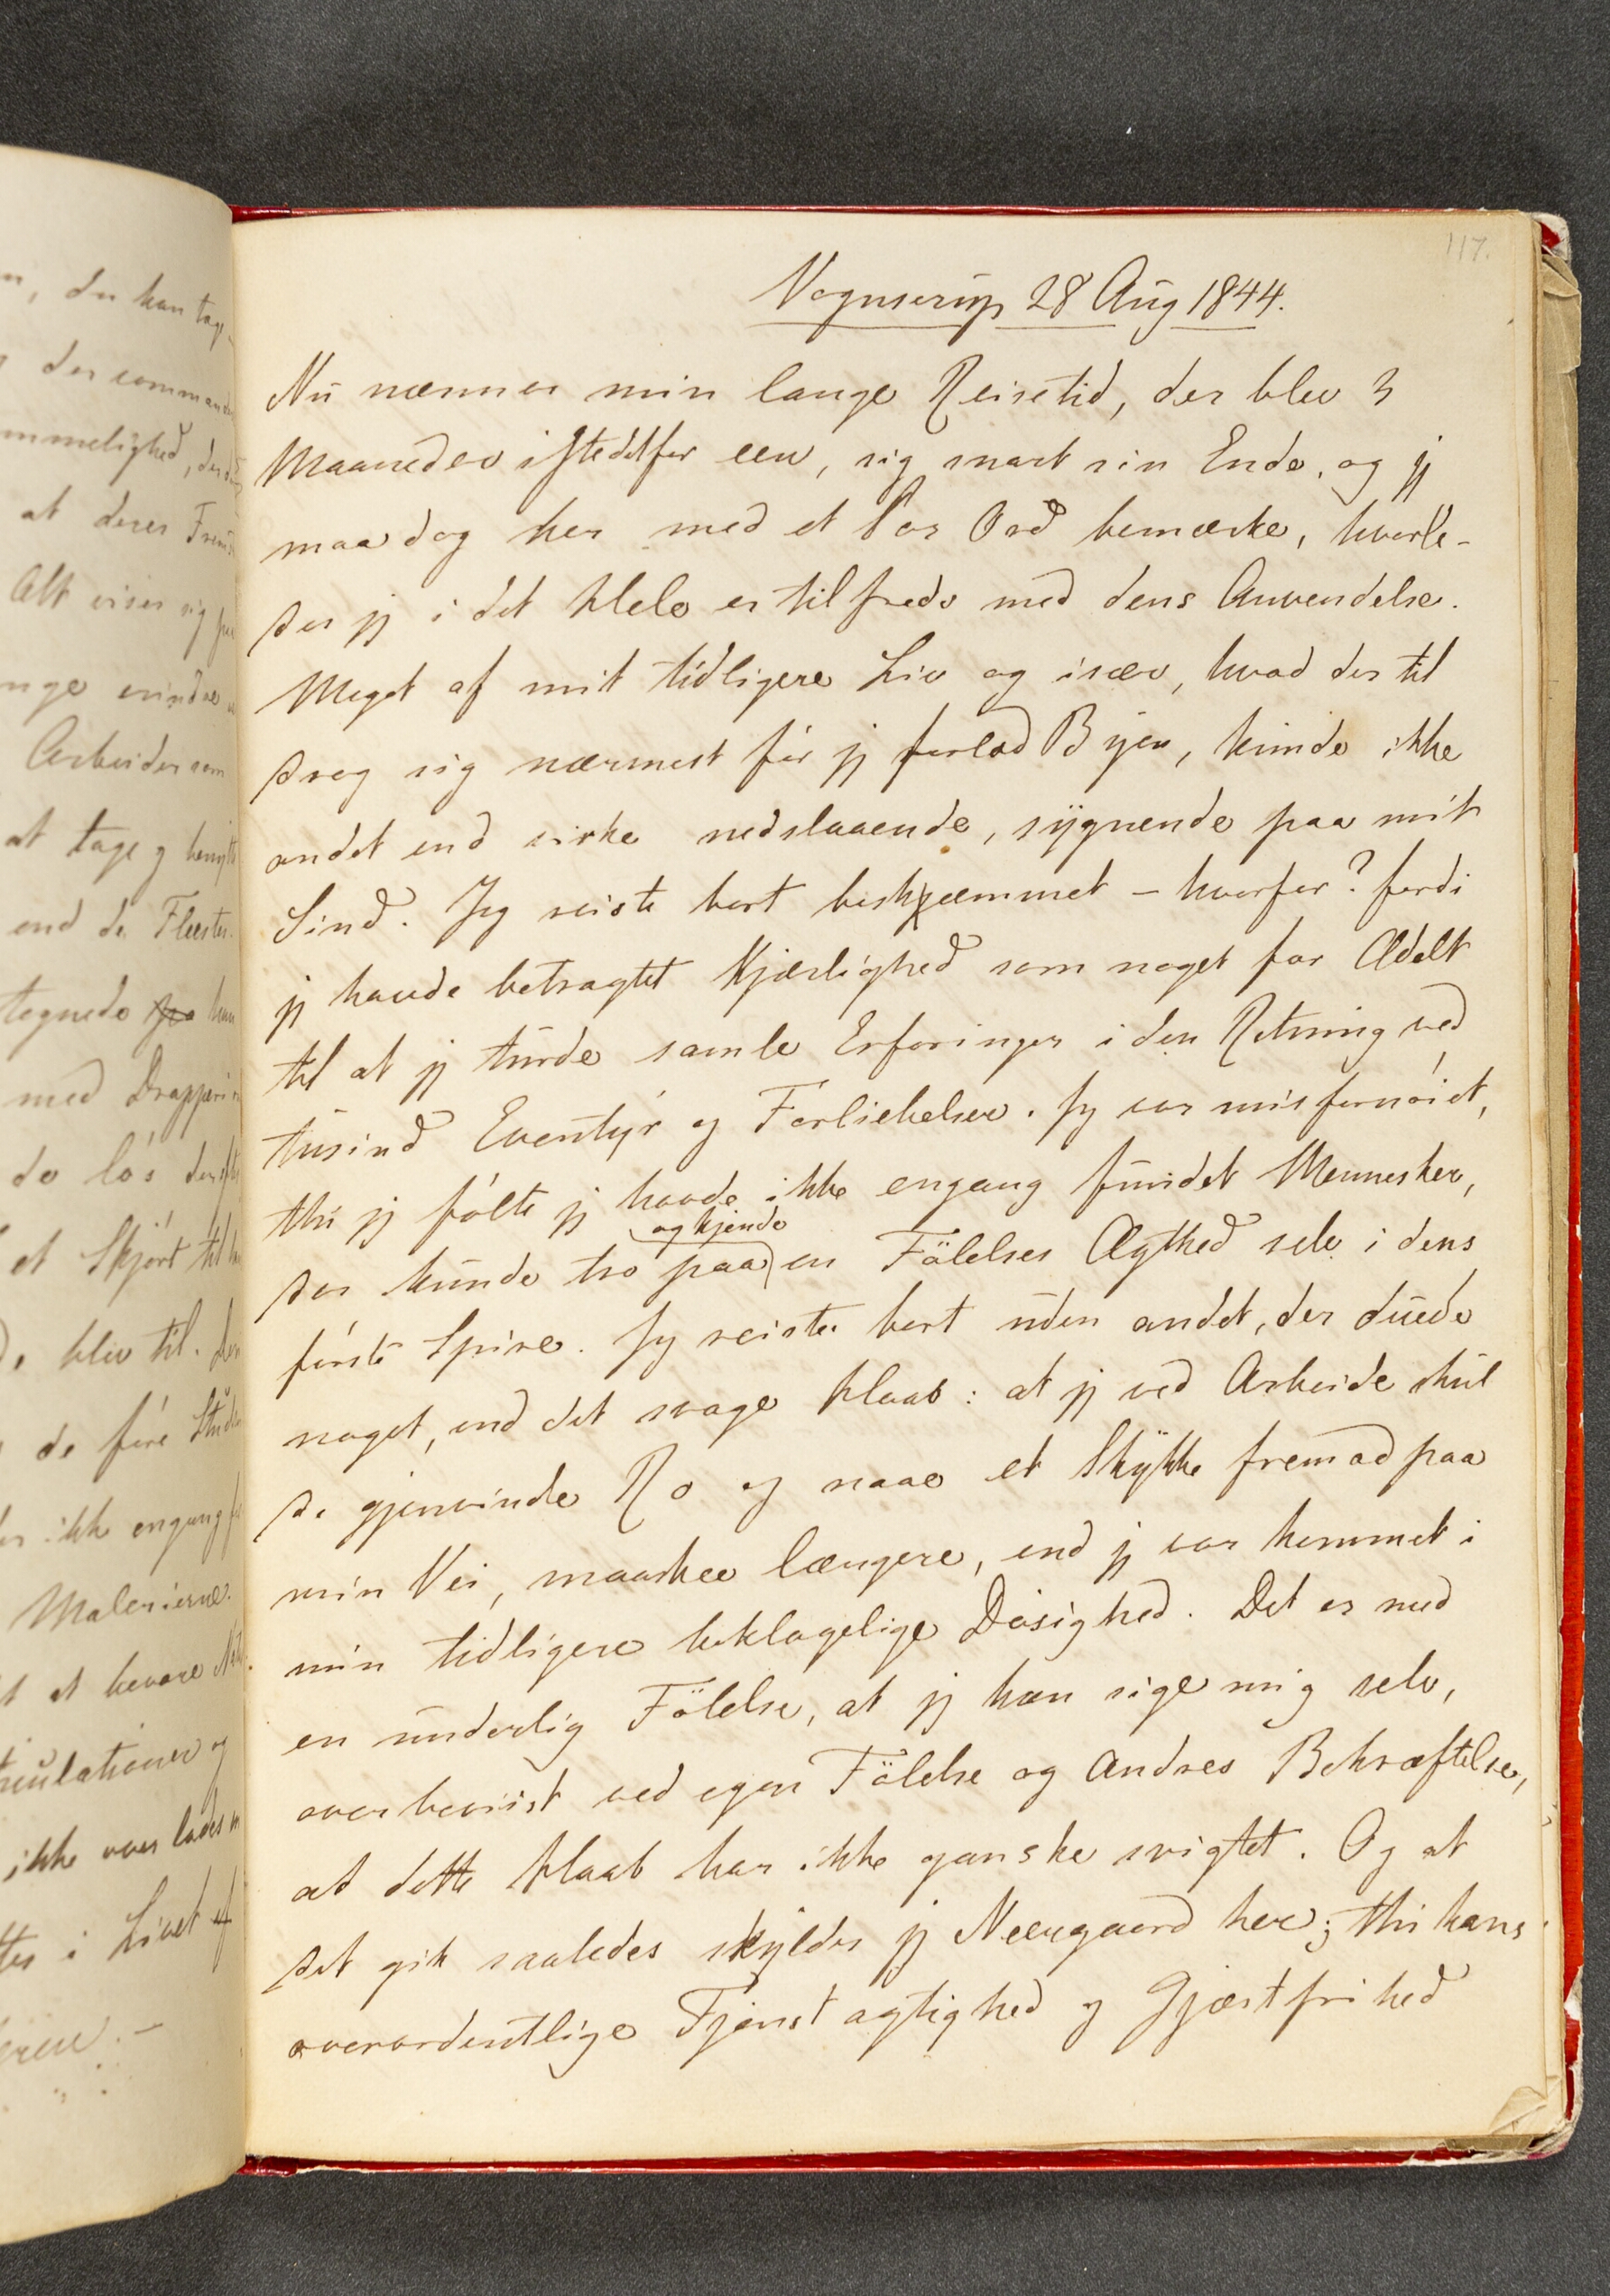 117.
Vognserup 28 Aug 1844.
Nu nærmer min lange Reisetid, der blev 3
Maaneder istedetfor een, sig snart sin Ende, og jeg
maa dog her med et Par Ord bemærke, hvorle-
des jeg i det Hele er tilfreds med dens Anvendelse.
Meget af mit tidligere Liv og især, hvad der til
drog sig nærmest før jeg forlod Byen, kunde ikke
andet end virke nedslaaende, sygnende paa mit
Sind. Jeg reiste bort beskjæmmet – hvorfor? fordi
jeg havde betragtet Kjærlighed som noget for Ædelt
til at jeg turde samle Erfaringer i den Retning ved
tusind Eventyr og Forliebelser. Jeg var misfornøiet,
thi jeg følte jeg havde ikke engang fundet Mennesker,
og kjende
der kunde tro paa en Følelses Ægthed selv i dens
første Spire. Jeg reiste bort uden andet, der duede
noget, end det svage Haab: at jeg ved Arbeide skul
de gjenvinde Ro og naae et Stykke fremad paa
min Vei, maaskee længere, end jeg var kommet i
min tidligere beklagelige Døsighed. Det er med
en underlig Følelse, at jeg kan sige mig selv,
overbeviist ved egen Følelse og Andres Bekræftelse,
at dette Haab har ikke ganske svigtet. Og at
det gik saaledes skylder jeg Neergaard her; thi hans
overordentlige Tjenstagtighed og Gjæstfrihed
n, der kan tage
der comman
mmelighed, der
at deres
Alt viser sig
nge
Arbeider som
at tage og
end de Fleste
tegnede
med Drapperi
de løs
et Skjørt til
blev til.
de føre
ikke engang
Malerierne.
at bevare
og
ikke overlades
i Livet